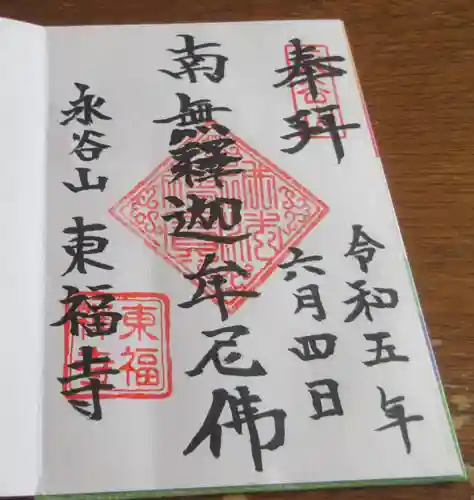 奉拝
令和五年
六月四日
南無釋迦牟尼佛
永谷山 東福寺
東福